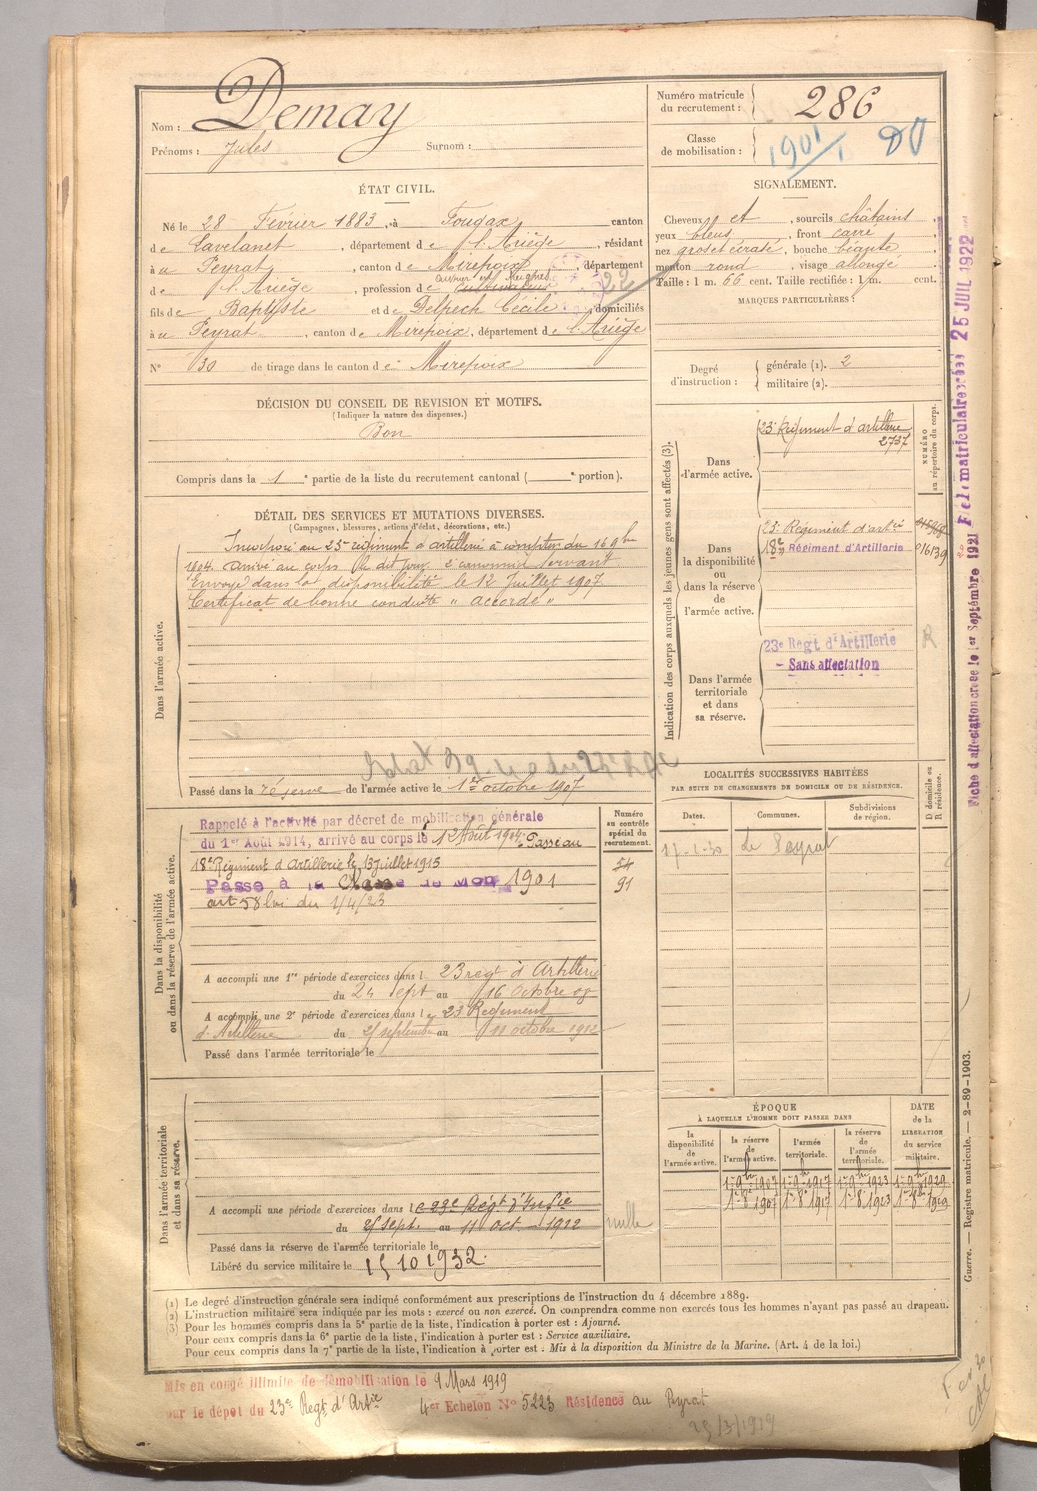 Nom : Demay
Prénoms : Jules Surnom :
Numéro matricule du recrutement : 286
Classe de mobilisation : 1901
ÉTAT CIVIL.
Né le 28 Février 1883, à Foudax, canton
de Lavelanet, département de l'Ariège, résidant
à u Peyrat, canton de Mirepoix, département
de l'Ariège, profession de cultivateur
fils de Baptiste et de Delpech Cécile, domiciliés
à u Peyrat, canton de Mirepoix, département de l'Ariège
N° 130 de tirage dans le canton de Mirepoix
SIGNALEMENT.
Cheveux et, sourcils châtains
yeux bleus, front carré
nez gros et écrasé, bouche béante
menton rond, visage allongé
Taille : 1 m. 66 cent. Taille rectifiée : 1 m. cent.
MARQUES PARTICULIÈRES :
Degré d'instruction : générale (1). 2
militaire (2).
DÉCISION DU CONSEIL DE REVISION ET MOTIFS.
(Indiquer la nature des dispenses.)
Bon
Compris dans la 1e partie de la liste du recrutement cantonal ( e portion).
DÉTAIL DES SERVICES ET MUTATIONS DIVERSES.
(Campagnes, blessures, actions d'éclat, décorations, etc.)
Dans l'armée active.
Incorporé au 23e régiment d'artillerie à compter du 16 9bre
1904. Arrivé au corps le dit jour. 2e canonnier servant
Envoyé dans la disponibilité le 12 Juillet 1907
Certificat de bonne conduite " accordé "
Passé dans la réserve de l'armée active le 1er octobre 1907
Indication des corps auxquels les jeunes gens sont affectés (3).
NUMÉRO au répertoire du corps.
Dans l'armée active.
23e Régiment d'artillerie
2737
Dans la disponibilité ou dans la réserve de l'armée active.
23e Régiment d'artie
18e Régiment d'Artillerie 016139
Dans l'armée territoriale et dans sa réserve.
23e Régt d'Artillerie
- Sans affectation
R
LOCALITÉS SUCCESSIVES HABITÉES
PAR SUITE DE CHANGEMENTS DE DOMICILE OU DE RÉSIDENCE.
Dates. Communes. Subdivisions de région. D domicile ou R résidence.
17-1-30 Le Peyrat
Dans la disponibilité ou dans la réserve de l'armée active.
Numéro au contrôle spécial du recrutement.
Rappelé à l'activité par décret de mobilisation générale
du 1er Août 1914, arrivé au corps le 12 Août 1914. Passé au
18e Régiment d'Artillerie le 13 juillet 1915
54
Passé à la Classe de Mob 1901
91
art 58 loi du 1/4/23
A accompli une 1re période d'exercices dans l 23 regt d'Artillerie
du 24 Sept au 16 Octobre 08
A accompli une 2e période d'exercices dans le 23 Régiment
d'Artillerie du 25 septembre au 11 octobre 1912
Passé dans l'armée territoriale le
Dans l'armée territoriale et dans sa réserve.
A accompli une période d'exercices dans le 23e Régt d'Infie
du 25 sept. au 11 Oct. 1912 nulle
Passé dans la réserve de l'armée territoriale le
Libéré du service militaire le 15 10 1932.
ÉPOQUE
À LAQUELLE L'HOMME DOIT PASSER DANS
la disponibilité de l'armée active. la réserve de l'armée active. l'armée territoriale. la réserve de l'armée territoriale.
DATE de la LIBÉRATION du service militaire.
1er 9bre 1907 1er 9bre 1917 1er 9bre 1923 1er 9bre 1929
1er 8bre 1907 1er 8bre 1917 1er 8bre 1923 1er 8bre 1929
(1) Le degré d'instruction générale sera indiqué conformément aux prescriptions de l'instruction du 4 décembre 1889.
(2) L'instruction militaire sera indiquée par les mots : exercé ou non exercé. On comprendra comme non exercés tous les hommes n'ayant pas passé au drapeau.
(3) Pour les hommes compris dans la 5e partie de la liste, l'indication à porter est : Ajourné.
Pour ceux compris dans la 6e partie de la liste, l'indication à porter est : Service auxiliaire.
Pour ceux compris dans la 7e partie de la liste, l'indication à porter est : Mis à la disposition du Ministre de la Marine. (Art. 4 de la loi.)
Mis en congé illimité de démobilisation le 9 Mars 1919
par le dépôt du 23e Regt d'Artie 4er Echelon N° 5223 Résidence au Peyrat
25/3/1919
Fiche d'affectation créée le 1er Septembre 1921
Fiches matriculaires créées 25 JUIL 1922
Guerre. — Registre matricule. — 2-89-1903.